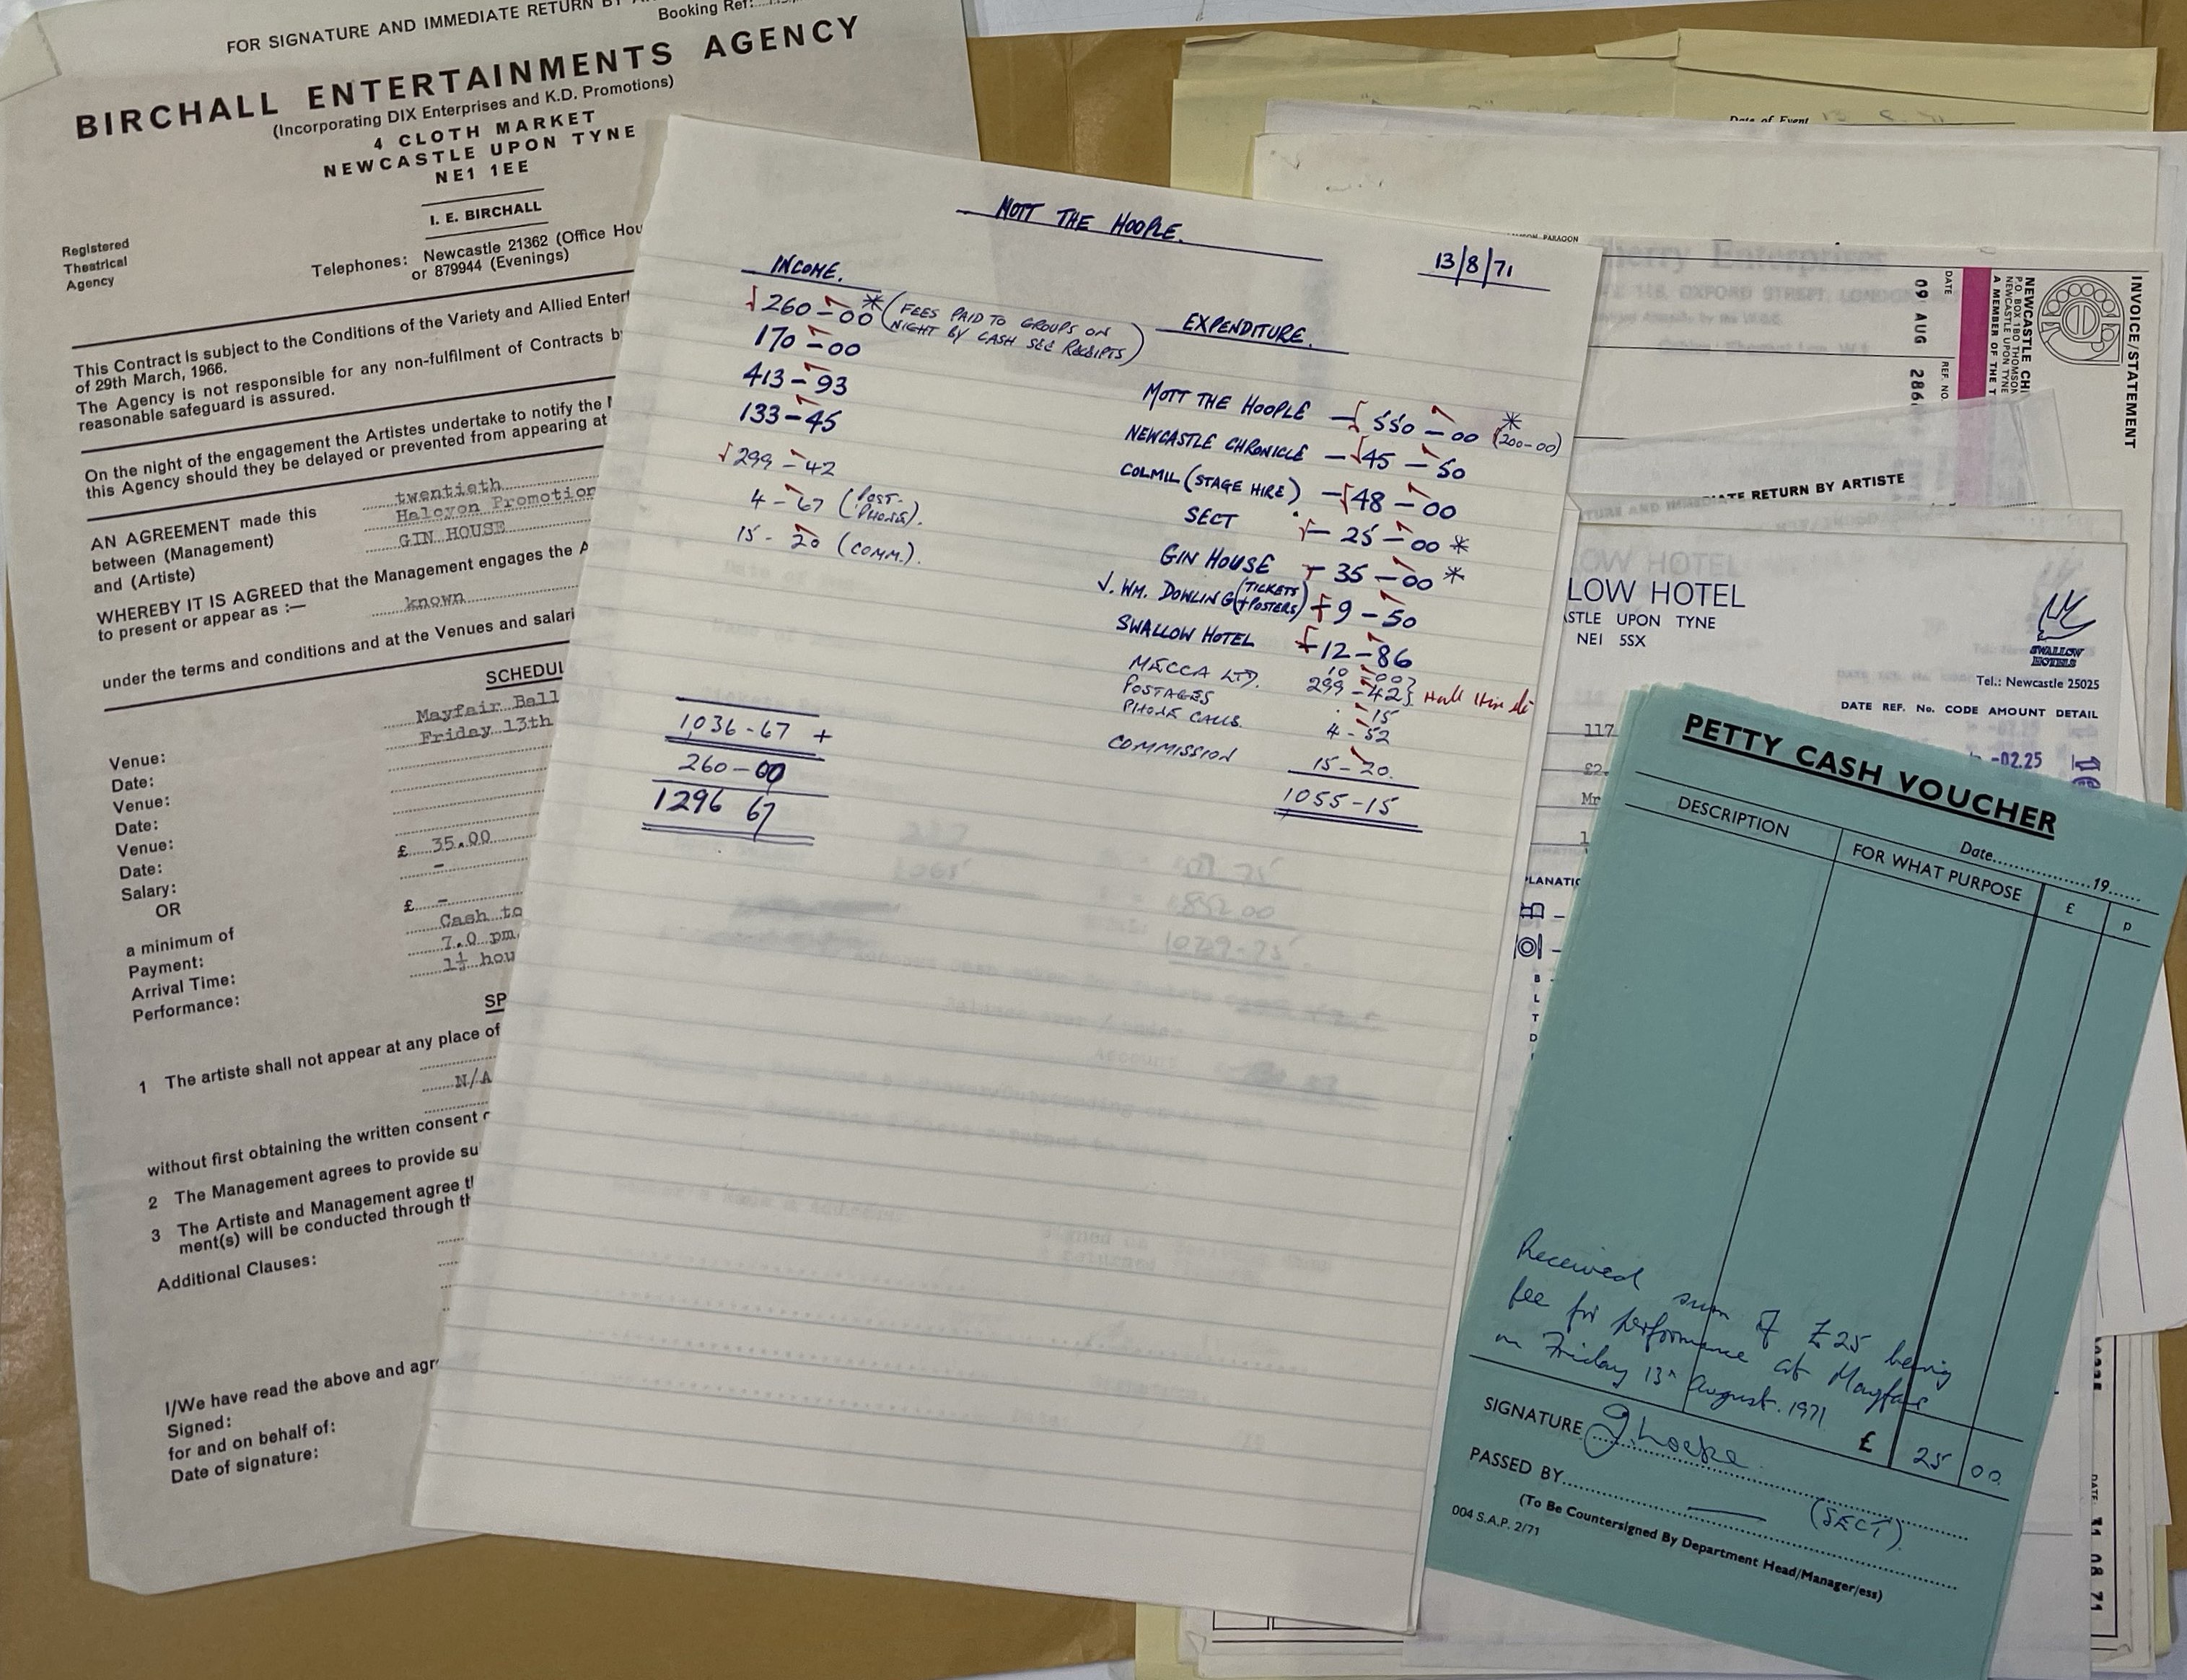 FOR SIGNATURE AND IMMEDIATE RETURN BY
Booking Ref:
BIRCHALL ENTERTAINMENTS AGENCY
(Incorporating DIX Enterprises and K.D. Promotions)
4 CLOTH MARKET
NEWCASTLE UPON TYNE
NE1 1EE
I. E. BIRCHALL
Registered
Theatrical
Agency
Telephones: Newcastle 21362 (Office Hou
or 879944 (Evenings)
This Contract is subject to the Conditions of the Variety and Allied Entert
of 29th March, 1966.
The Agency is not responsible for any non-fulfilment of Contracts b
reasonable safeguard is assured.
On the night of the engagement the Artistes undertake to notify the
this Agency should they be delayed or prevented from appearing at
AN AGREEMENT made this twentieth
between (Management) Halcyon Promotion
and (Artiste) GIN HOUSE
WHEREBY IT IS AGREED that the Management engages the A
to present or appear as :— known
under the terms and conditions and at the Venues and salari
SCHEDUL
Venue: Mayfair Ball
Date: Friday 13th
Venue:
Date:
Venue:
Date:
Salary: £ 35.00
OR –
a minimum of £ –
Payment: Cash to
Arrival Time: 7.0 pm
Performance: 1½ hou
SP
1 The artiste shall not appear at any place of
N/A
without first obtaining the written consent
2 The Management agrees to provide su
3 The Artiste and Management agree t
ment(s) will be conducted through th
Additional Clauses:
I/We have read the above and agr
Signed:
for and on behalf of:
Date of signature:
MOTT THE HOOPLE.
13/8/71
INCOME.
260-00 * (FEES PAID TO GROUPS ON
NIGHT BY CASH SEE RECEIPTS)
170-00
413-93
133-45
299-42
4-67 (POST-
PHONE).
15-20 (COMM.).
1,036-67 +
260-00
1296 67
EXPENDITURE.
MOTT THE HOOPLE — 550-00 * (200-00)
NEWCASTLE CHRONICLE — 45-50
COLMIL (STAGE HIRE) — 48-00
SECT — 25-00 *
GIN HOUSE — 35-00 *
J. WM. DOWLING (TICKETS
+ POSTERS) — 9-50
SWALLOW HOTEL — 12-86
10-00
MECCA LTD. 299-42 } Hall Hire
POSTAGES -15
PHONE CALLS. 4-52
COMMISSION 15-20.
1055-15
Date of Event 13 8 71
PARAGON
herry Enterprises
OXFORD STREET, LONDON
INVOICE/STATEMENT
NEWCASTLE CH
P.O. BOX 180 THOMSON
NEWCASTLE UPON TYNE
A MEMBER OF THE T
DATE
09 AUG
REF. NO.
286
IATE RETURN BY ARTISTE
LOW HOTEL
STLE UPON TYNE
NE1 5SX
SWALLOW
HOTELS
Tel.: Newcastle 25025
DATE REF. No. CODE AMOUNT DETAIL
-02.25
117
£2.
Mr
PLANATIC
B
L
T
D
DATE:
11 08 71
PETTY CASH VOUCHER
Date..........19.....
DESCRIPTION
FOR WHAT PURPOSE
£
p
Received sum of £25 being
fee for performance at Mayfair
on Friday 13th August. 1971
£ 25 00
SIGNATURE
PASSED BY
(SECT)
(To Be Countersigned By Department Head/Manager/ess)
004 S.A.P. 2/71